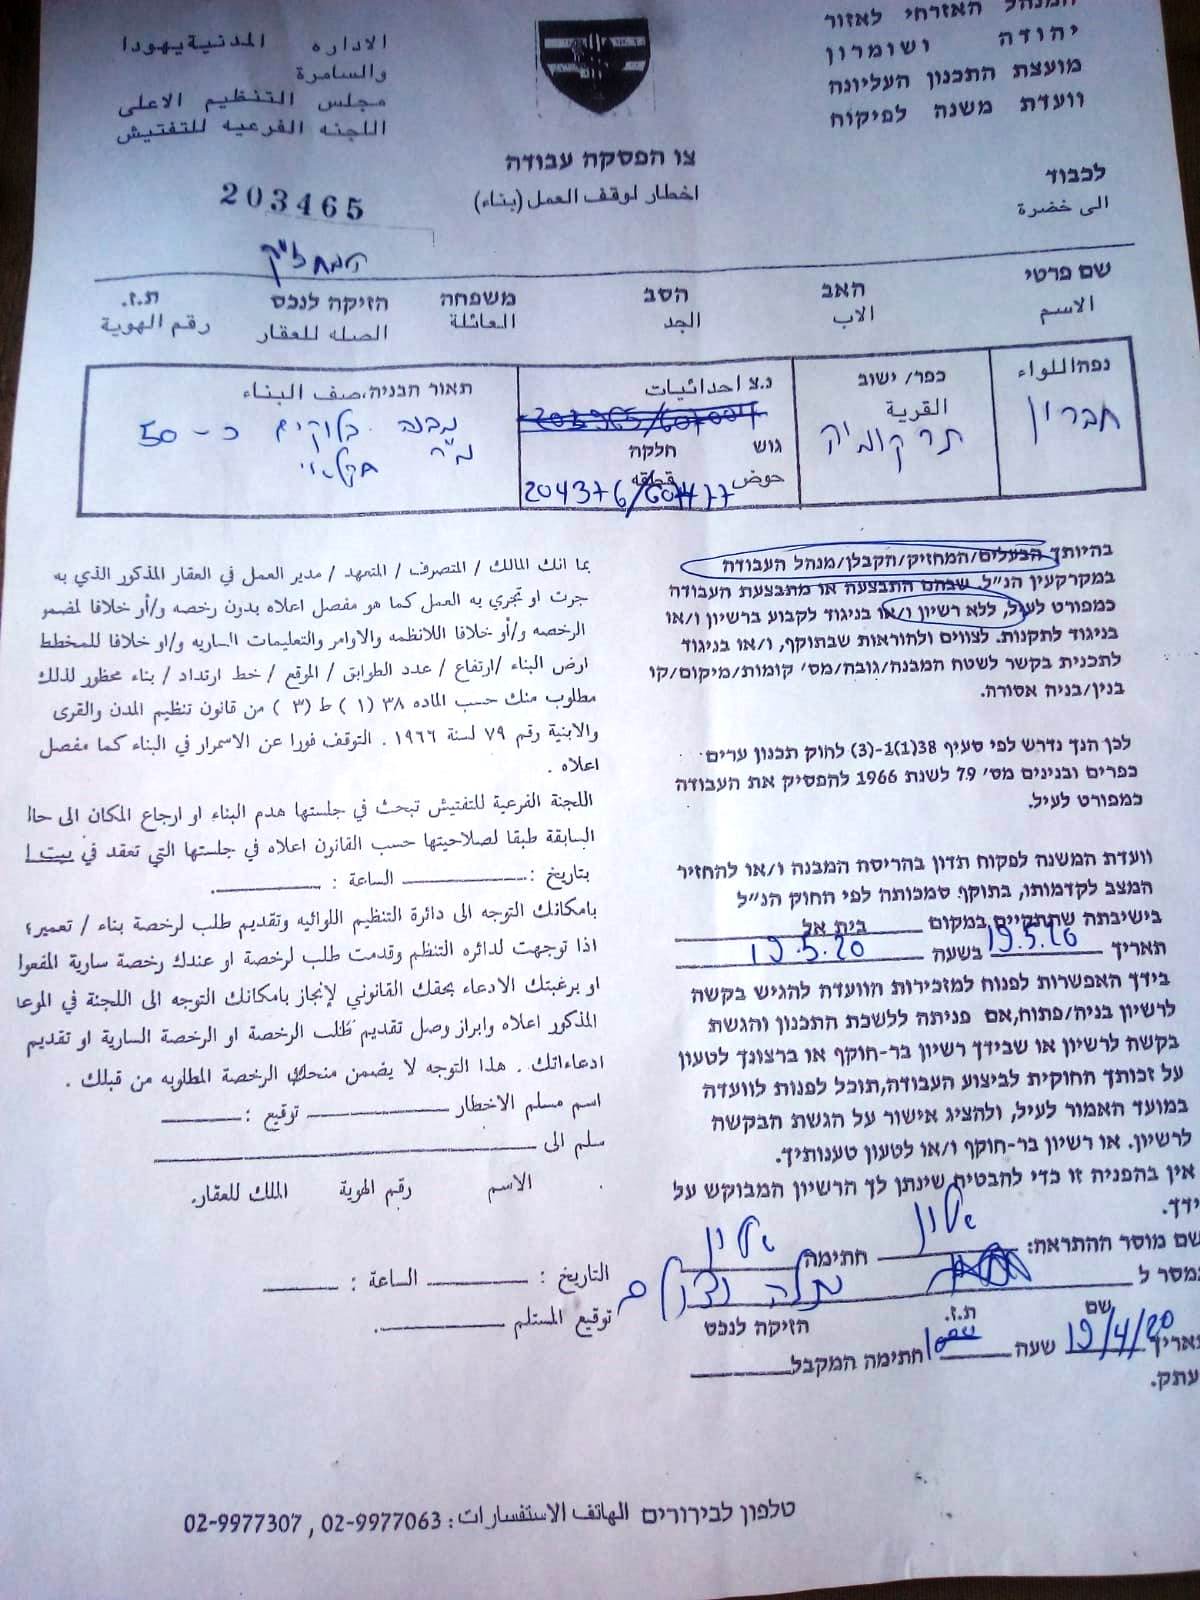 המנהל האזרחי לאזור
יהודה ושומרון
מועצת התכנון העליונה
וועדת משנה לפיקוח
الاداره المدنية يهودا
والسامرة
مجلس التنظيم الاعلى
اللجنه الفرعيه للتفتيش
צו הפסקה עבודה
اخطار لوقف العمل (بناء)
203465
לכבוד
الى حضرة
המחזיק
שם פרטי האב הסב משפחה הזיקה לנכס ת.ז.
الاسم الاب الجد العائلة الصله للعقار رقم الهوية
נפה اللواء
חברון
כפר/ ישוב
القرية
תרקומיה
נ.צ احداثيات
גוש חלקה
حوض قطعه
204376/607477
תאור הבניה. صف البناء
מבנה בלוקים כ-50
מ"ר חקלאי
בהיותך הבעלים/המחזיק/הקבלן/מנהל העבודה
במקרקעין הנ"ל, שבהם התבצעה או מתבצעת העבודה
כמפורט לעיל, ללא רשיון ו/או בניגוד לקבוע ברשיון ו/או
בניגוד לתקנות. לצווים ולהוראות שבתוקף, ו/או בניגוד
לתכנית בקשר לשטח המבנה/גובה/מס' קומות/מיקום/קו
בנין/בניה אסורה.
לכן הנך נדרש לפי סעיף 38(1)1-(3) לחוק תכנון ערים
כפרים ובנינים מס' 79 לשנת 1966 להפסיק את העבודה
כמפורט לעיל.
וועדת המשנה לפקוח תדון בהריסה המבנה ו/או להחזיר
המצב לקדמותו, בתוקף סמכותה לפי החוק הנ"ל
בישיבתה שתתקיים במקום בית אל
תאריך 19.5.20 בשעה 19.5.20
בידך האפשרות לפנות למזכירות הוועדה להגיש בקשה
לרשיון בניה/פתוח,אם פניתה ללשכת התכנון והגשת
בקשה לרשיון או שבידך רשיון בר-תוקף או ברצונך לטעון
על זכותך החוקית לביצוע העבודה,תוכל לפנות לוועדה
במועד האמור לעיל, ולהציג אישור על הגשת הבקשה
לרשיון. או רשיון בר-תוקף ו/או לטעון טענותיך.
אין בהפניה זו כדי להבטיח שינתן לך הרשיון המבוקש על
ידך.
שם מוסר ההתראה: אלון חתימה אלון
נמסר ל
שם ת.ז. הזיקה לנכס
תאריך 19/4/20 שעה חתימה המקבל
עתק.
بما انك المالك / المتصرف / المتعهد / مدير العمل في العقار المذكور الذي به
جرت او تجري به العمل كما هو مفصل اعلاه بدون رخصه و/أو خلافا لمضمو
الرخصه و/أو خلافا اللانظمه والاوامر والتعليمات الساريه و/او خلافا للمخطط
ارض البناء /ارتفاع / عدد الطوابق / الموقع / خط ارتداد / بناء محظور لذلك
مطلوب منك حسب الماده ٣٨ (١) ط (٣) من قانون تنظيم المدن والقرى
والابنية رقم ٧٩ لسنة ١٩٦٦ . التوقف فورا عن الاسمرار في البناء كما مفصل
اعلاه .
اللجنة الفرعية للتفتيش تبحث في جلستها هدم البناء او ارجاع المكان الى حال
السابقة طبقا لصلاحيتها حسب القانون اعلاه في جلستها التي تعقد في بيت ا
بتاريخ : الساعة :
بامكانك التوجه الى دائرة التنظيم اللوائيه وتقديم طلب لرخصة بناء / تعمير؟
اذا توجهت لدائره التنظم وقدمت طلب لرخصة او عندك رخصة سارية المفعوا
او برغبتك الادعاء بحقك القانوني لإنجاز بامكانك التوجه الى اللجنة في الموعا
المذكور اعلاه وابراز وصل تقديم طلب الرخصة او الرخصة السارية او تقديم
ادعاءاتك . هذا التوجه لا يضمن منحك الرخصة المطلوبه من قبلك .
اسم مسلم الاخطار توقيع :
سلم الى
الاسم رقم الهوية الملك للعقار.
التاريخ : الساعة :
توقيع المستلم
טלפון לבירורים الهاتف الاستفسارات : 02-9977063 , 02-9977307